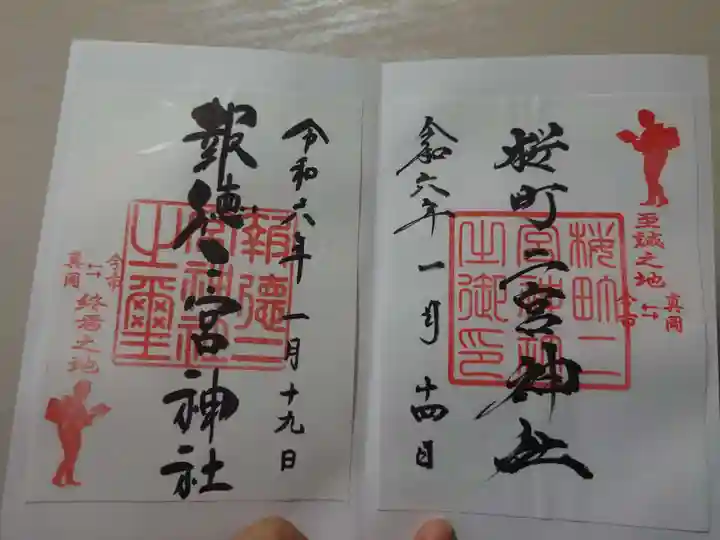 至誠之地
真岡
↔
今市
桜町二宮神社
桜町二
宮神社
之御印
令和六年一月十四日
令和六年一月十九日
報徳二宮神社
報徳二
宮神社
之璽
今市
↔
真岡
終焉之地